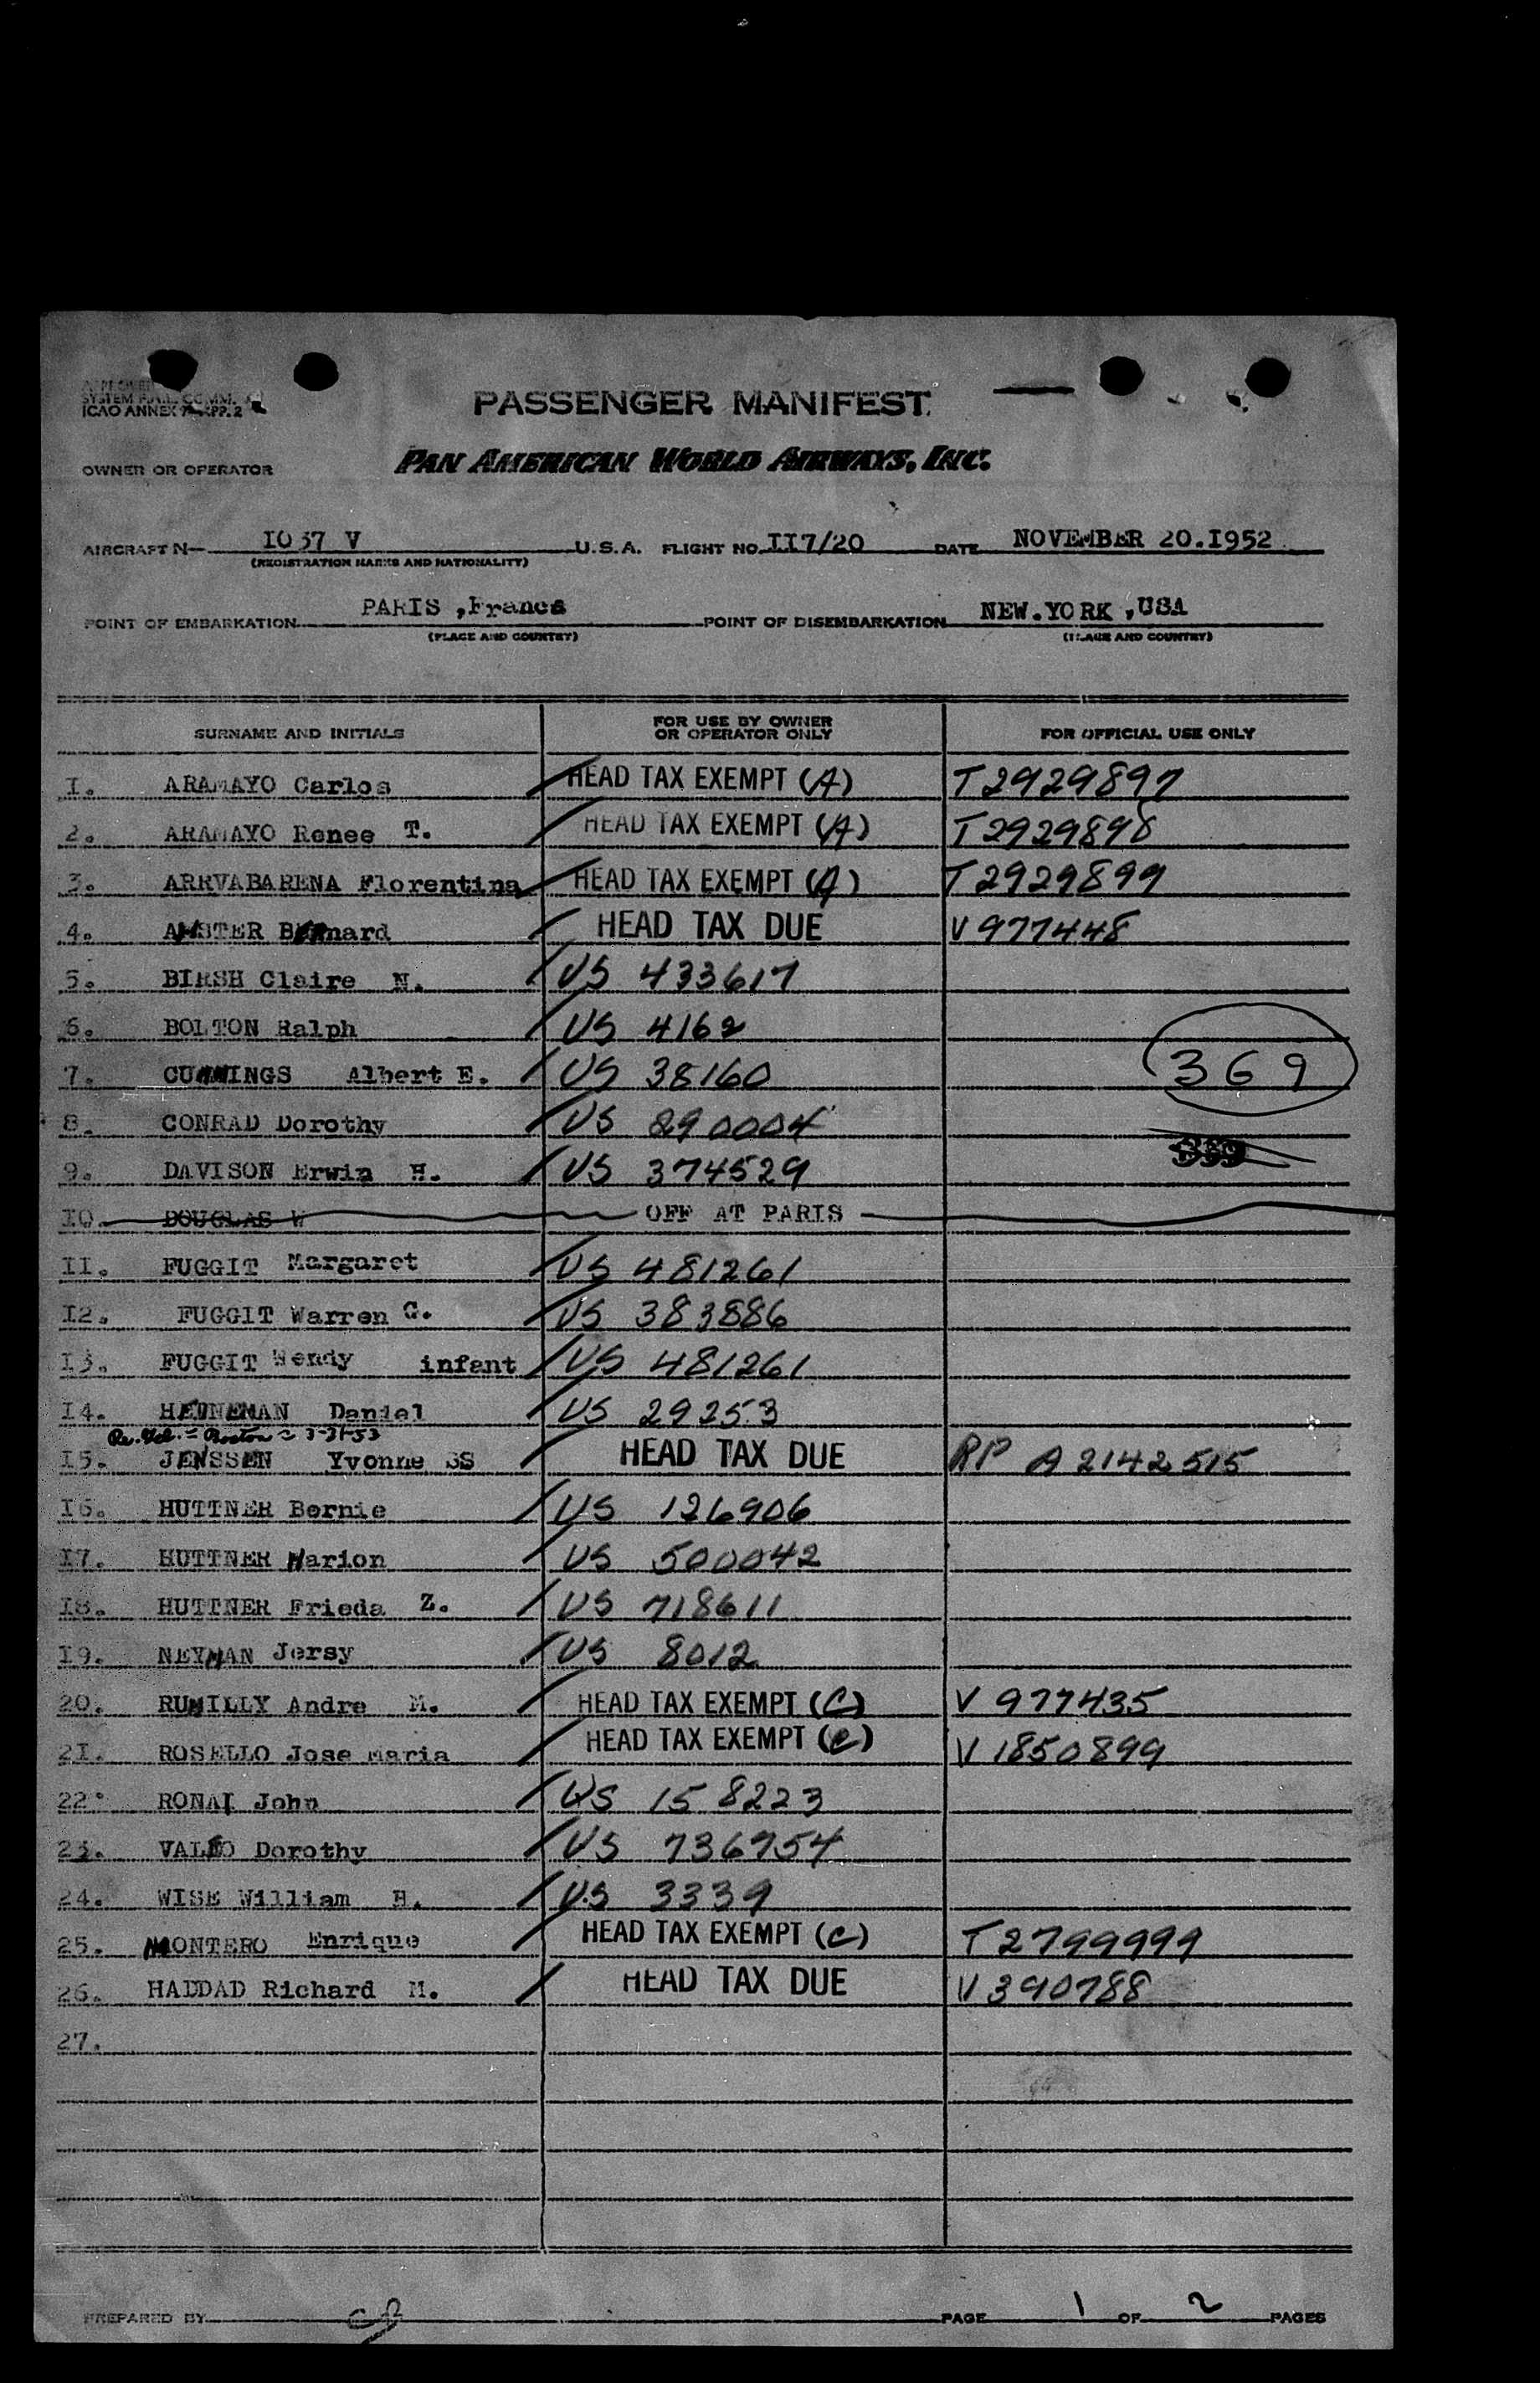 SYSTEM F.A.L. COMM.
ICAO ANNEX APP. 2
PASSENGER MANIFEST
OWNER OR OPERATOR PAN AMERICAN WORLD AIRWAYS, INC.
AIRCRAFT N— IO37 V U.S.A. FLIGHT NO. II7/20 DATE NOVEMBER 20.I952
(REGISTRATION MARKS AND NATIONALITY)
POINT OF EMBARKATION PARIS ,France POINT OF DISEMBARKATION NEW.YORK ,USA
(PLACE AND COUNTRY) (PLACE AND COUNTRY)
SURNAME AND INITIALS FOR USE BY OWNER OR OPERATOR ONLY FOR OFFICIAL USE ONLY
I. ARAMAYO Carlos HEAD TAX EXEMPT (A) T2929897
2. ARAMAYO Renee T. HEAD TAX EXEMPT (A) T2929898
3. ARRVABARENA Florentina HEAD TAX EXEMPT (A) T2929899
4. Bernard HEAD TAX DUE V977448
5. BIRSH Claire N. US 433617
6. BOLTON Ralph US 4162
7. CUMMINGS Albert E. US 38160 369
8. CONRAD Dorothy US 290004
9. DAVISON Erwin H. US 374529
10. DOUGLAS W OFF AT PARIS
II. FUGGIT Margaret US 481261
I2. FUGGIT Warren G. US 383886
I3. FUGGIT Wendy infant US 481261
I4. HEINEMAN Daniel US 29253
Boston 3-31-53
I5. JENSSEN Yvonne SS HEAD TAX DUE RP A2142515
I6. HUTTNER Bernie US 126906
I7. HUTTNER Marion US 500042
I8. HUTTNER Frieda Z. US 718611
I9. NEYMAN Jersy US 8012
20. RUMILLY Andre M. HEAD TAX EXEMPT (C) V 977435
2I. ROSELLO Jose Maria HEAD TAX EXEMPT (C) V1850899
22. RONAI John US 158223
23. Dorothy US 736954
24. WISE William H. US 3339
25. MONTERO Enrique HEAD TAX EXEMPT (C) T2799999
26. HADDAD Richard M. HEAD TAX DUE V390788
27.
PREPARED BY CB PAGE 1 OF 2 PAGES